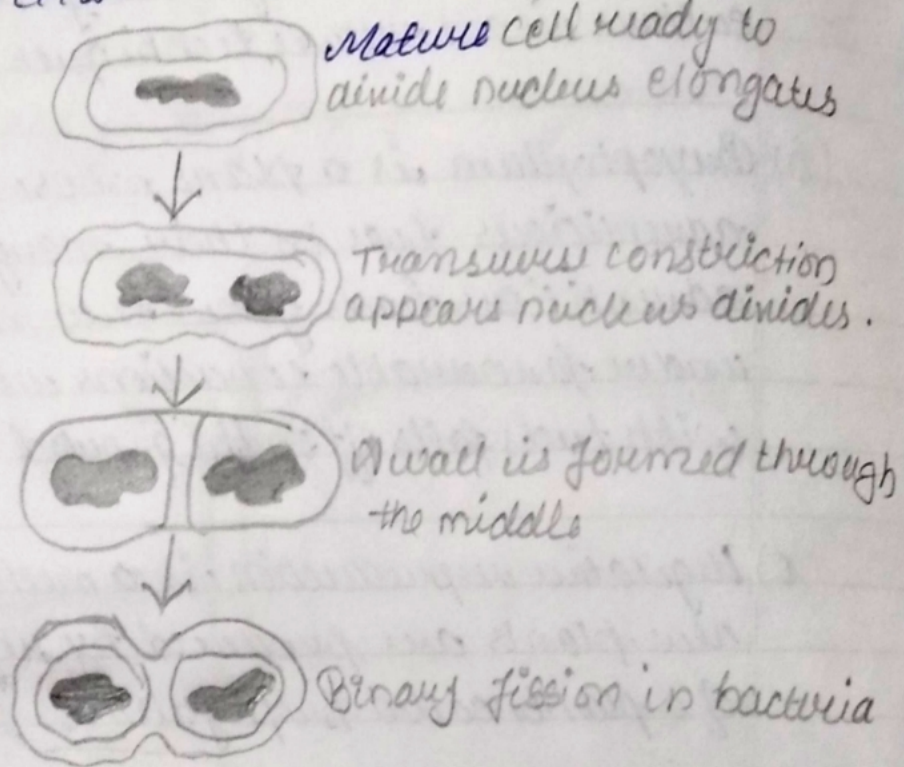 Mature cell ready to
divide nucleus elongates
Transverse constriction
appears nucleus divides.
A wall is formed through
the middle
Binary fission in bacteria